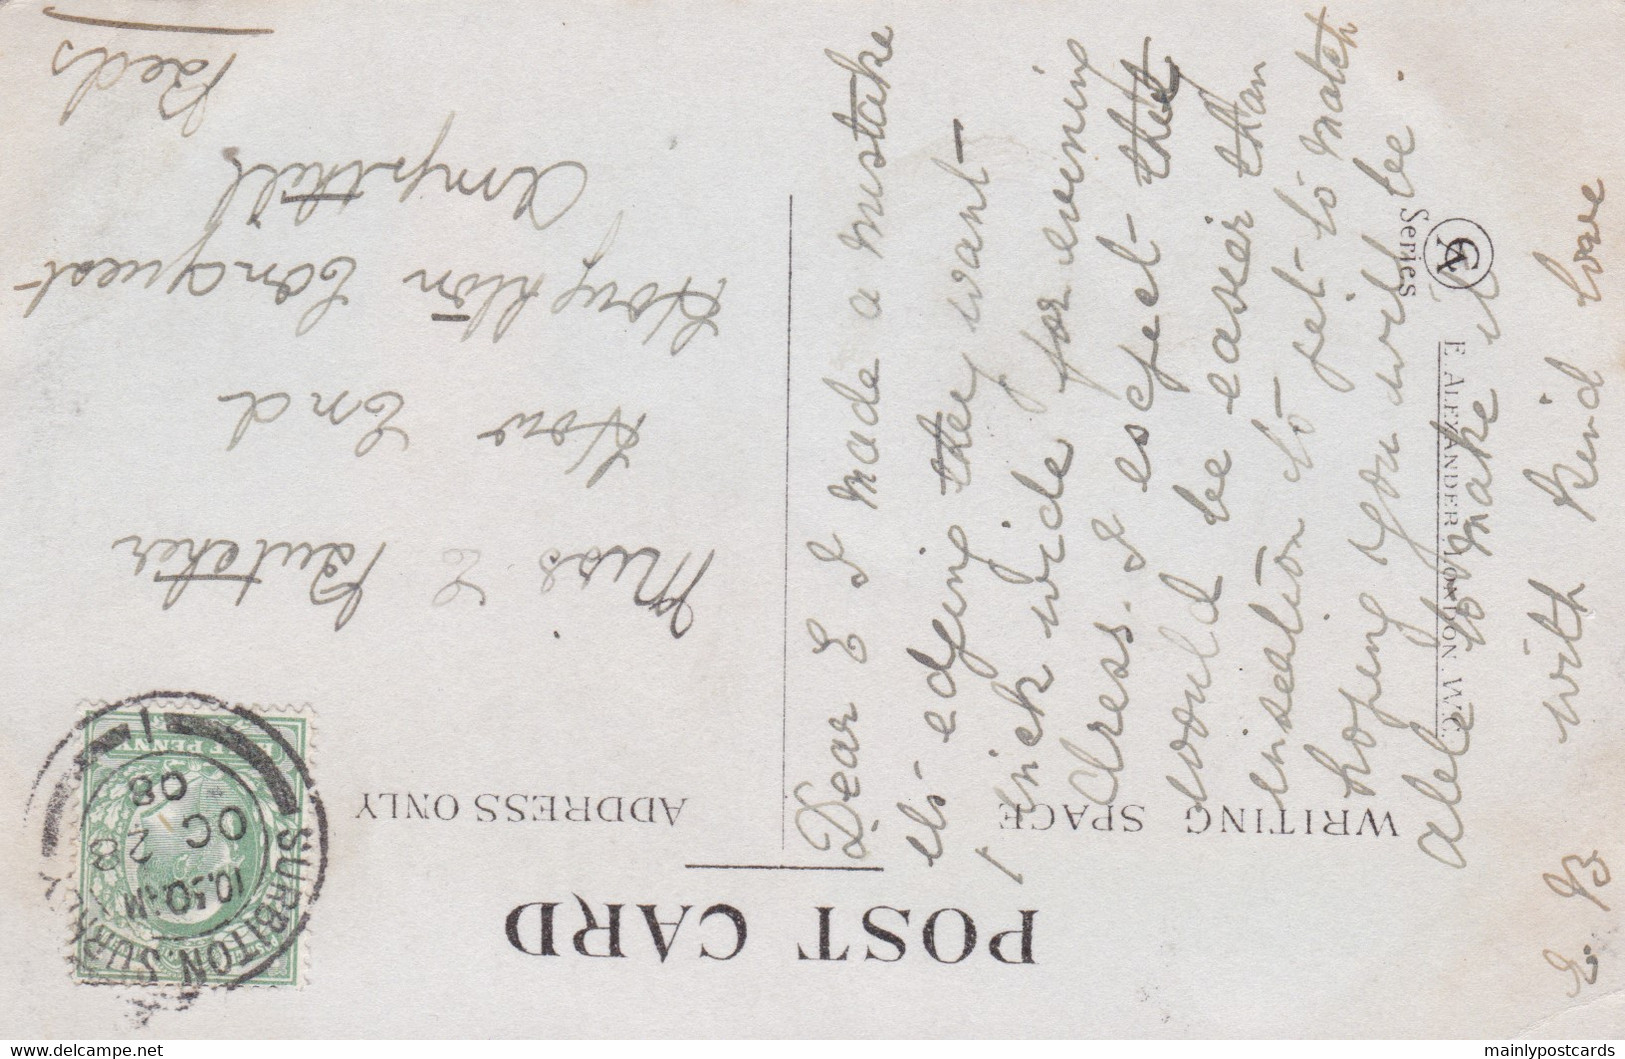 POST CARD
WRITING SPACE
ADDRESS ONLY
Dear E I made a mistake
its edging they want
inch wide for evening
dress. I expect that
would be easier than
insertion to get to match
hoping you will be
able to make it
with kind love
E. B
Miss E Butcher
How End
Houghton Conquest
Ampthill
Beds
E. ALEXANDER, LONDON. W.C.
CA
Series
SURBITON. SURREY
10.30AM
OC 28
08
1
HALF PENNY
mainlypostcards